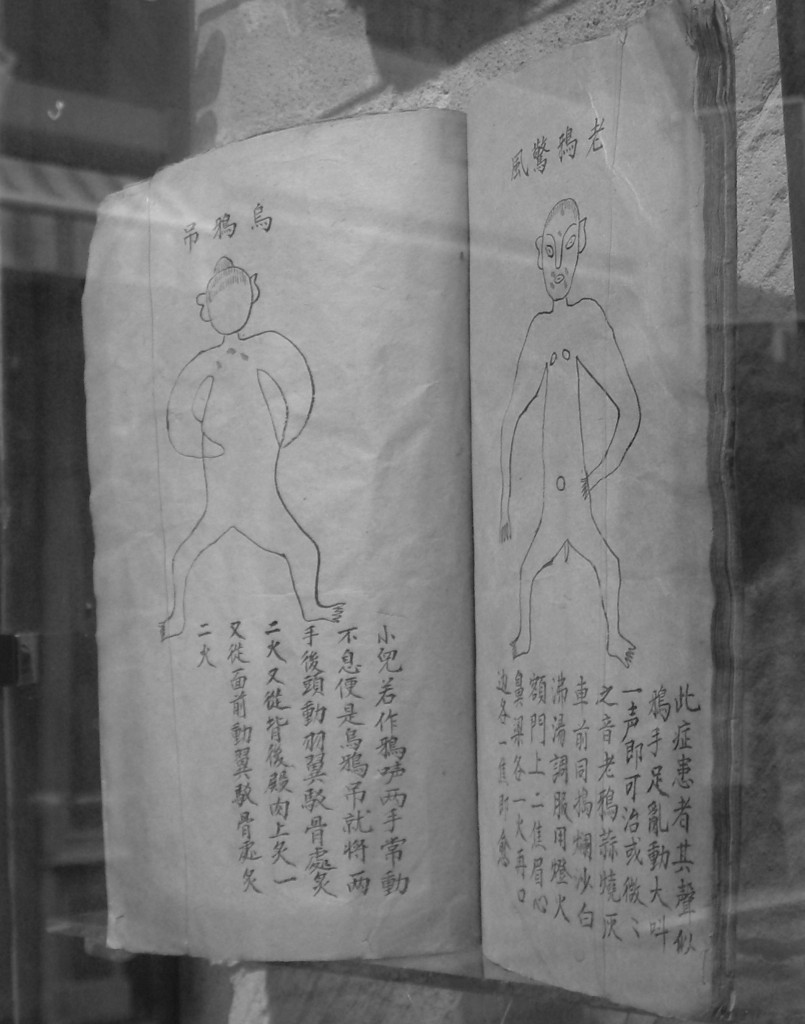 老鴉驚風
此症患者其聲似
鴉手足亂動大叫
一声即可治或微〻
之音老鴉蒜燒灰
車前同搗爛沙白
湯調服用燈火
額門上二焦眉心
鼻梁各一火再口
边各一焦即愈
烏鴉吊
小兒若作鴉啼两手常動
不息便是烏鴉吊就将两
手後頭動羽翼骨處灸
二火又從背後殿肉上灸一
又從面前動翼骨處灸
二火